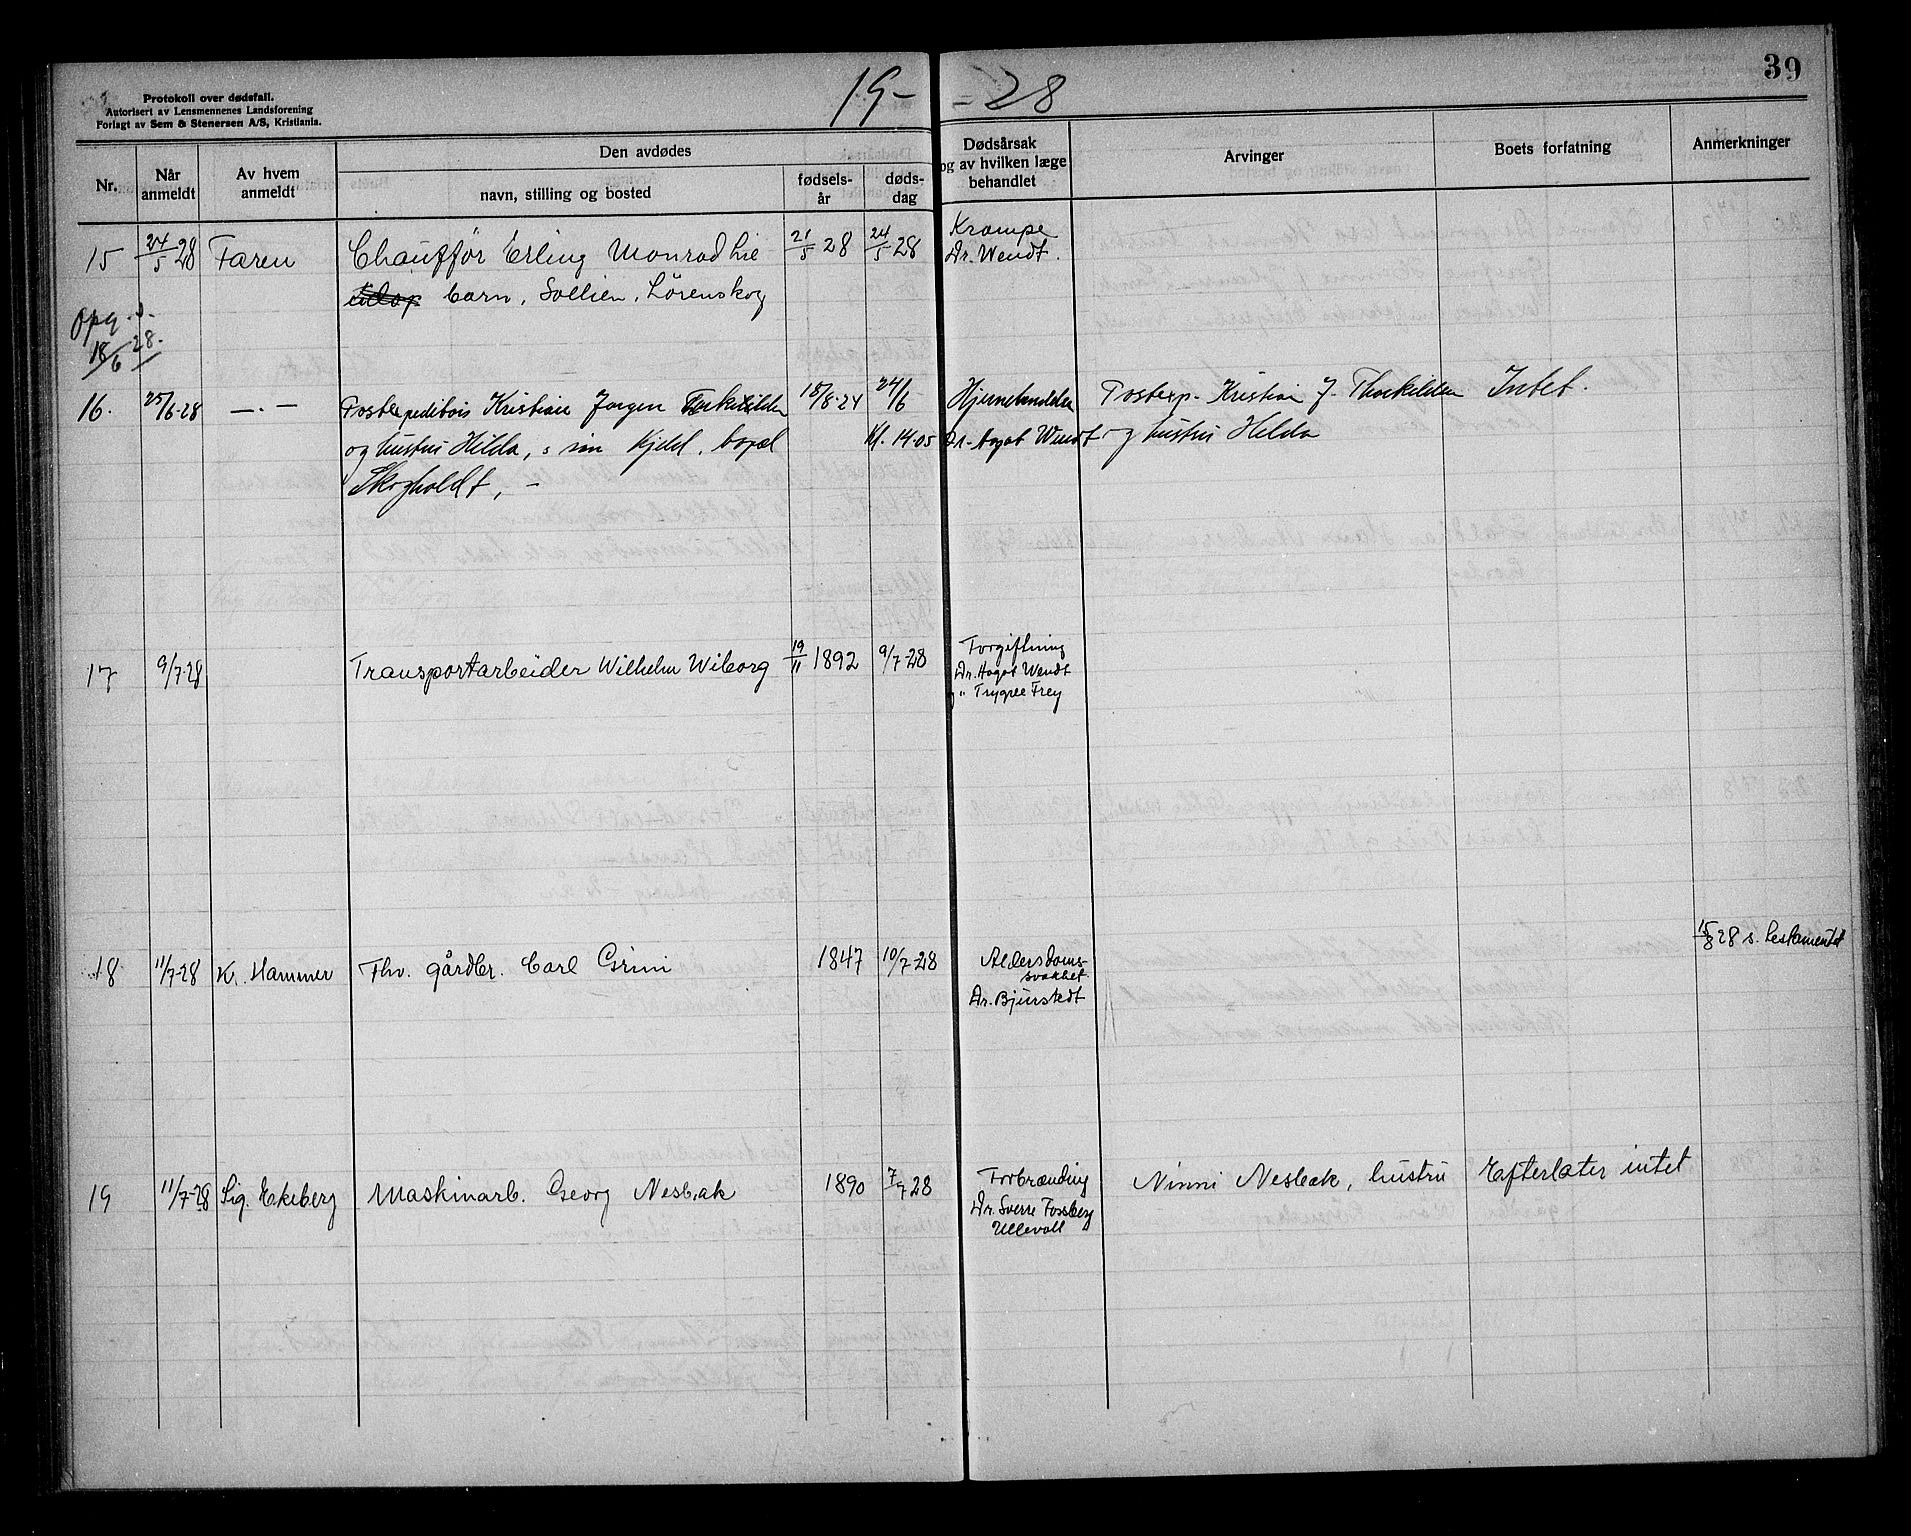 Protokoll over dødsfall.
Autorisert av Lensmennenes Landsforening
Forlagt av Sem & Stenersen A/S, Kristiania.
19- -28
39
Nr.
Når anmeldt
Av hvem anmeldt
Den avdødes
navn, stilling og bosted
fødsels-år
døds-dag
Dødsårsak
og av hvilken læge
behandlet
Arvinger
Boets forfatning
Anmerkninger
15 24/5 28 Faren Chauffør Erling Monrad Lie 21/5 28 24/5 28 Krampe
Dr. Wendt.
barn, Sollien, Lørenskog
Opg.
18/6 28.
16. 25/6-28 —.— Postexpeditør Kristian Jørgen Torkildsen 18/8-24 24/6 Hjernebetendelse Postexp. Kristian J. Thorkildsen Intet.
og hustru Hilda, s søn Kjell, bopæl Kl. 14.05 Dr. Aagot Wendt og hustru Hilda
Skogholdt, -
17 9/7-28 Transportarbeider Wilhelm Wiborg 19/11 1892 9/7-28 Forgiftning
Dr. Aagot Wendt
" Trygve Frey
18 11/7-28 K. Hammer Fhv. gårdbr. Carl Grini 1847 10/7-28 Alderdoms-
svakhet.
Dr. Bjurstedt
15/8 28 s. testamentet
19 11/7-28 Sig. Ekeberg Maskinarb. Georg Nesbak 1890 7/7 28 Forbrænding Ninni Nesbak, hustru Efterlater intet
Dr. Sverre Fossberg
Ullevoll